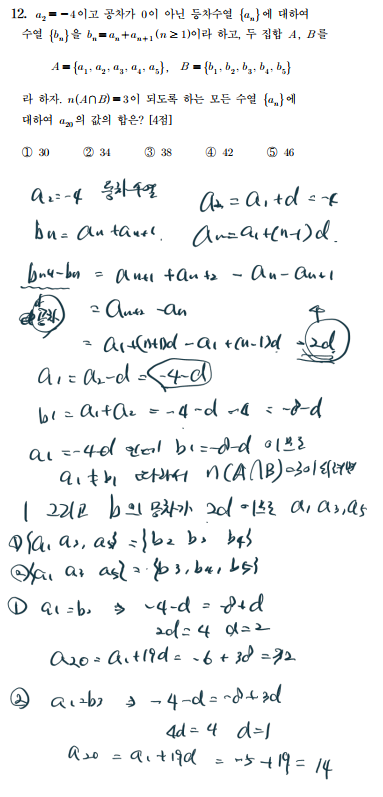 12. a₂=-4이고 공차가 0이 아닌 등차수열 {aₙ}에 대하여
수열 {bₙ}을 bₙ=aₙ+aₙ₊₁(n≥1)이라 하고, 두 집합 A, B를
A={a₁, a₂, a₃, a₄, a₅}, B={b₁, b₂, b₃, b₄, b₅}
라 하자. n(A∩B)=3이 되도록 하는 모든 수열 {aₙ}에
대하여 a₂₀의 값의 합은? [4점]
① 30 ② 34 ③ 38 ④ 42 ⑤ 46
a₂=-4 등차수열 a₂=a₁+d=-4
bₙ=aₙ+aₙ₊₁. aₙ=a₁+(n-1)d.
bₙ₊₁-bₙ = aₙ₊₁+aₙ₊₂-aₙ-aₙ₊₁
공차 = aₙ₊₂-aₙ
= a₁+(n+1)d-a₁+(n-1)d = 2d
a₁=a₂-d=-4-d
b₁=a₁+a₂=-4-d-4=-8-d
a₁=-4-d 인데 b₁=-8-d 이므로
a₁≠b₁ 따라서 n(A∩B)=3이 되려면
그리고 b의 공차가 2d 이므로 a₁ a₃, a₅
①{a₁ a₃, a₅}={b₂ b₃ b₄}
②{a₁ a₃ a₅}={b₃, b₄, b₅}
① a₁=b₂ ⇒ -4-d=-8+d
2d=4 d=2
a₂₀=a₁+19d=-6+38=32
② a₁=b₃ ⇒ -4-d=-8+3d
4d=4 d=1
a₂₀=a₁+19d=-5+19=14